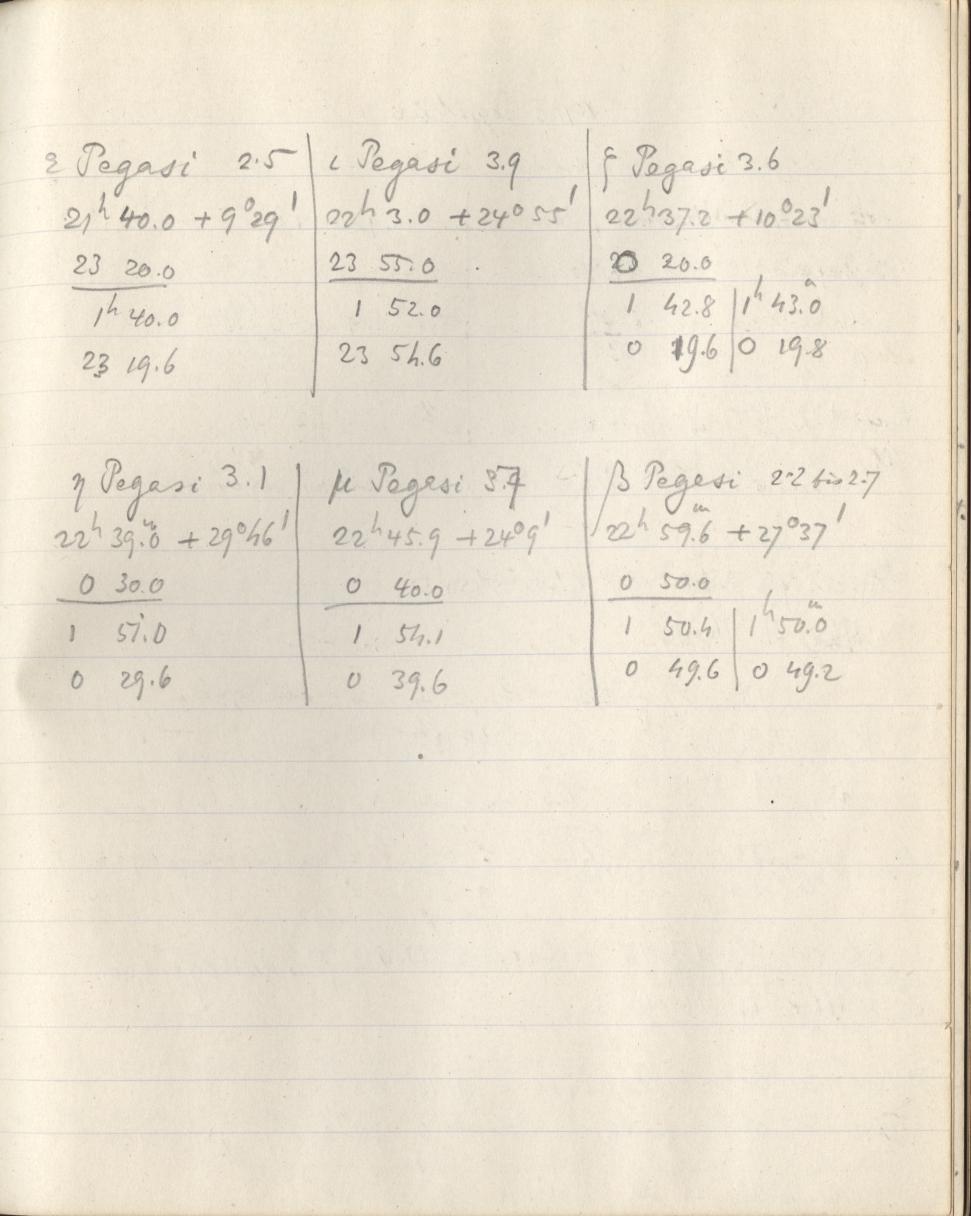 ε Pegasi 2.5
21ʰ 40.0 + 9°29'
23 20.0
1ʰ 40.0
23 19.6
ι Pegasi 3.9
22ʰ 3.0 + 24°55'
23 55.0
1 52.0
23 54.6
ξ Pegasi 3.6
22ʰ 37.2 + 10°23'
0 20.0
1 42.8 | 1ʰ 43.0ᵐ
0 19.6 | 0 19.8
η Pegasi 3.1
22ʰ 39.0ᵐ + 29°46'
0 30.0
1 51.0
0 29.6
μ Pegasi 3.7
22ʰ 45.9 + 24°9'
0 40.0
1 54.1
0 39.6
β Pegasi 2.2 bis 2.7
22ʰ 59.6ᵐ + 27°37'
0 50.0
1 50.4 | 1ʰ 50.0ᵐ
0 49.6 | 0 49.2